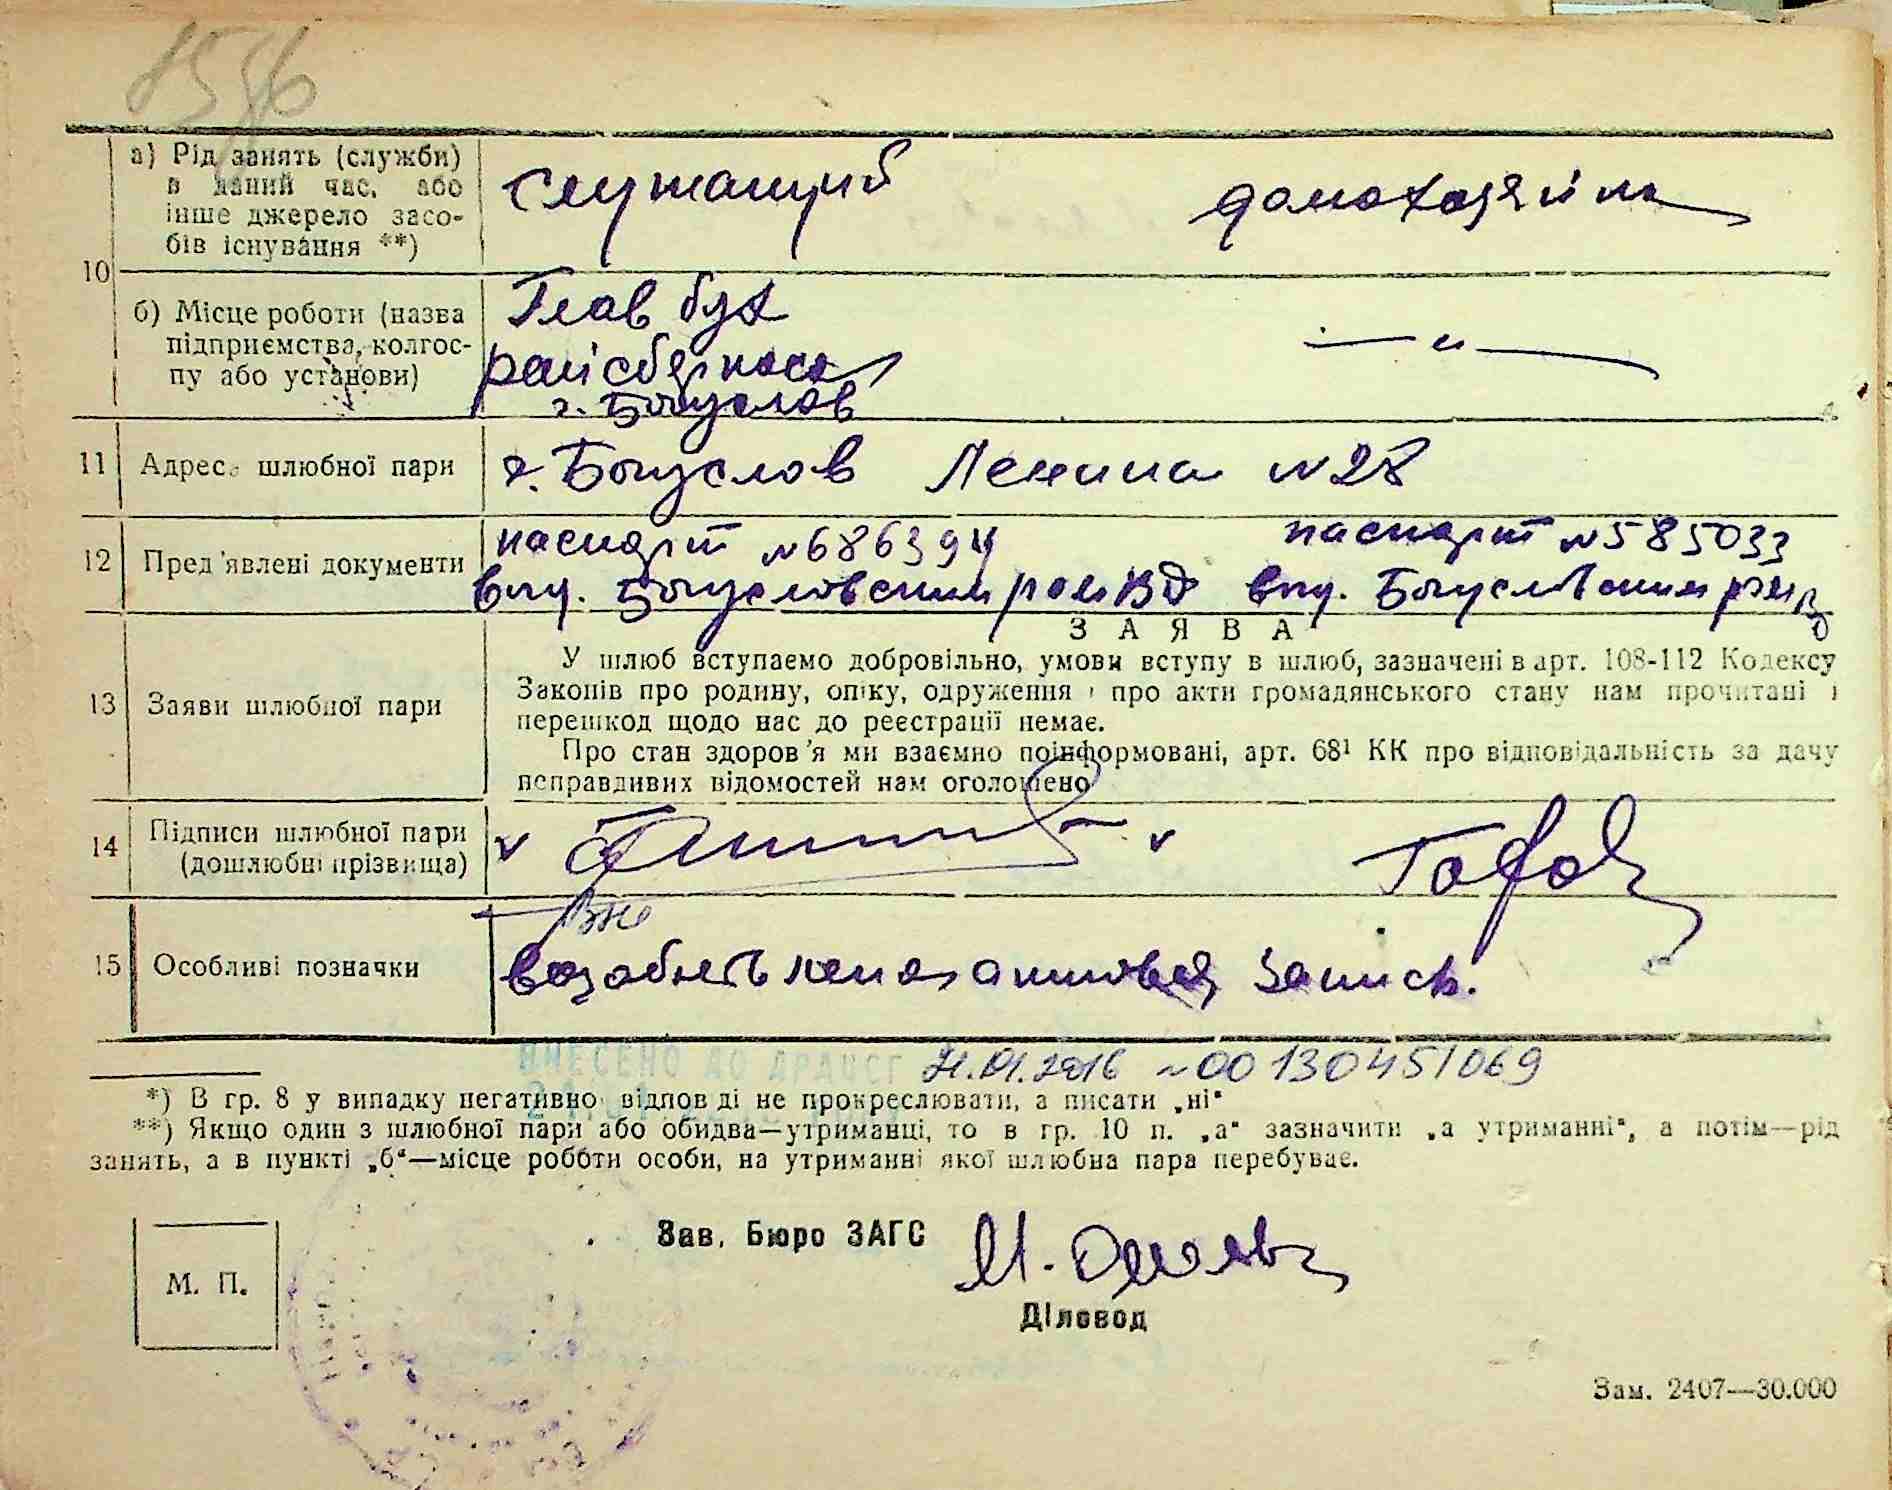 а) Рід занять (служби)
в даний час, або
інше джерело засо-
бів існування **)
служащий
домохозяйка
10
б) Місце роботи (назва
підприємства, колгос-
пу або установи)
Глав бух
райсберкаса
г. Богуслав
— " —
11 Адреса шлюбної пари
г. Богуслав Ленина №28
12 Пред'явлені документи
паспорт №686394
выд. Богуславским рай
паспорт №585033
выд. Богуславским
З А Я В А
13 Заяви шлюбної пари
У шлюб вступаємо добровільно, умови вступу в шлюб, зазначені в арт. 108-112 Кодексу
Законів про родину, опіку, одруження і про акти громадянського стану нам прочитані і
перешкод щодо нас до реєстрації немає.
Про стан здоров'я ми взаємно поінформовані, арт. 68¹ КК про відповідальність за дачу
неправдивих відомостей нам оголошено
14 Підписи шлюбної пари
(дошлюбні прізвища)
15 Особливі позначки
запись.
ВНЕСЕНО ДО ДРАЦСГ 21.01.2016 №00130451069
*) В гр. 8 у випадку негативної відповіді не прокреслювати, а писати „ні“
**) Якщо один з шлюбної пари або обидва—утриманці, то в гр. 10 п. „а“ зазначити „а утриманні“, а потім—рід
занять, а в пункті „б“—місце роботи особи, на утриманні якої шлюбна пара перебуває.
М. П.
Зав. Бюро ЗАГС
Діловод
Зам. 2407—30.000